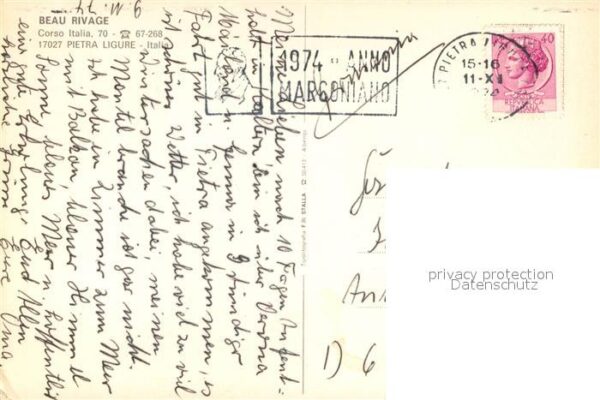 9.11.74
BEAU RIVAGE
Corso Italia, 70 - ☎ 67-268
17027 PIETRA LIGURE - Italia
Meine Lieben nach 10 Tagen Aufent-
halt in bin ich über Verona
Mailand u. Genua in 9 stündiger
Fahrt gut in Pietra angekommen, es
ist schönes Wetter, ich habe viel zu viel
Wintersachen dabei, meinen
Mantel brauche ich gar nicht.
Ich habe ein Zimmer zum Meer
mit Balkon, blauer Himmel
Sonne, blaues Meer u. hoffentlich
eine gute Erholung. Euch Allen
herzliche Grüsse Eure Oma
Fotolitografia F.lli STALLA
1974 - ANNO
MARCONIANO
PIETRA
15-16
11-XI
1974
40
REPUBBLICA
ITALIANA
Germania
D 6
privacy protection
Datenschutz